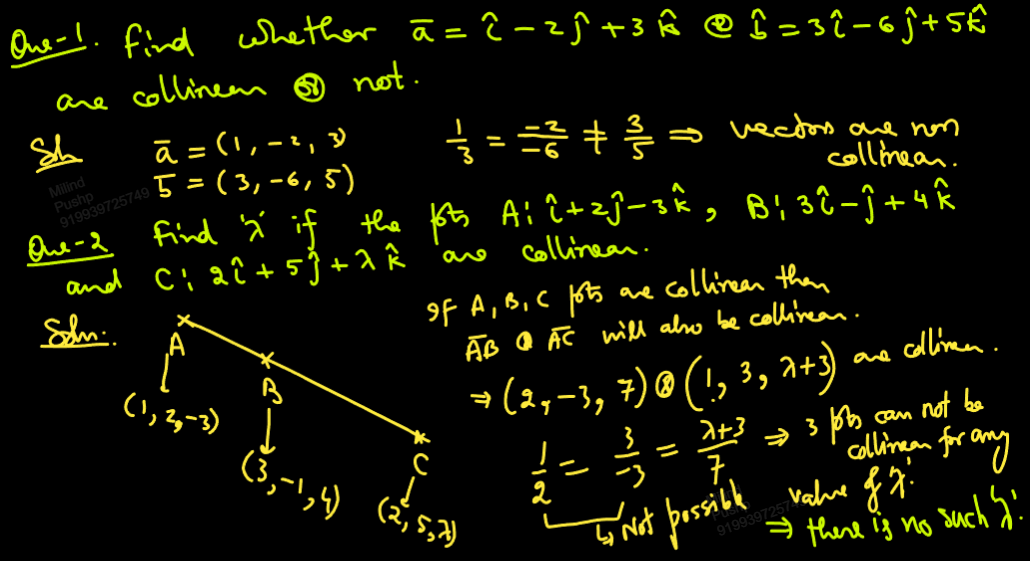 Que-1. Find whether a̅ = î - 2ĵ + 3k̂ & b̂ = 3î - 6ĵ + 5k̂
are collinear or not.
Soln a̅ = (1, -2, 3) 1/3 = -2/-6 ≠ 3/5 ⇒ vectors are non
b̅ = (3, -6, 5) collinear.
Milind
Pushp
919939725749
Que-2 Find 'λ' if the pts A: î + 2ĵ - 3k̂, B: 3î - ĵ + 4k̂
and C: 2î + 5ĵ + λk̂ are collinear.
Soln.
A
(1, 2, -3)
B
(3, -1, 4)
C
(2, 5, λ)
If A, B, C pts are collinear then
A̅B̅ & A̅C̅ will also be collinear.
⇒ (2, -3, 7) & (1, 3, λ+3) are collinear.
1/2 = 3/-3 = λ+3/7 ⇒ 3 pts can not be
collinear for any
value of 'λ'
↳ Not possible
⇒ there is no such 'λ'.
Pushp
919939725749